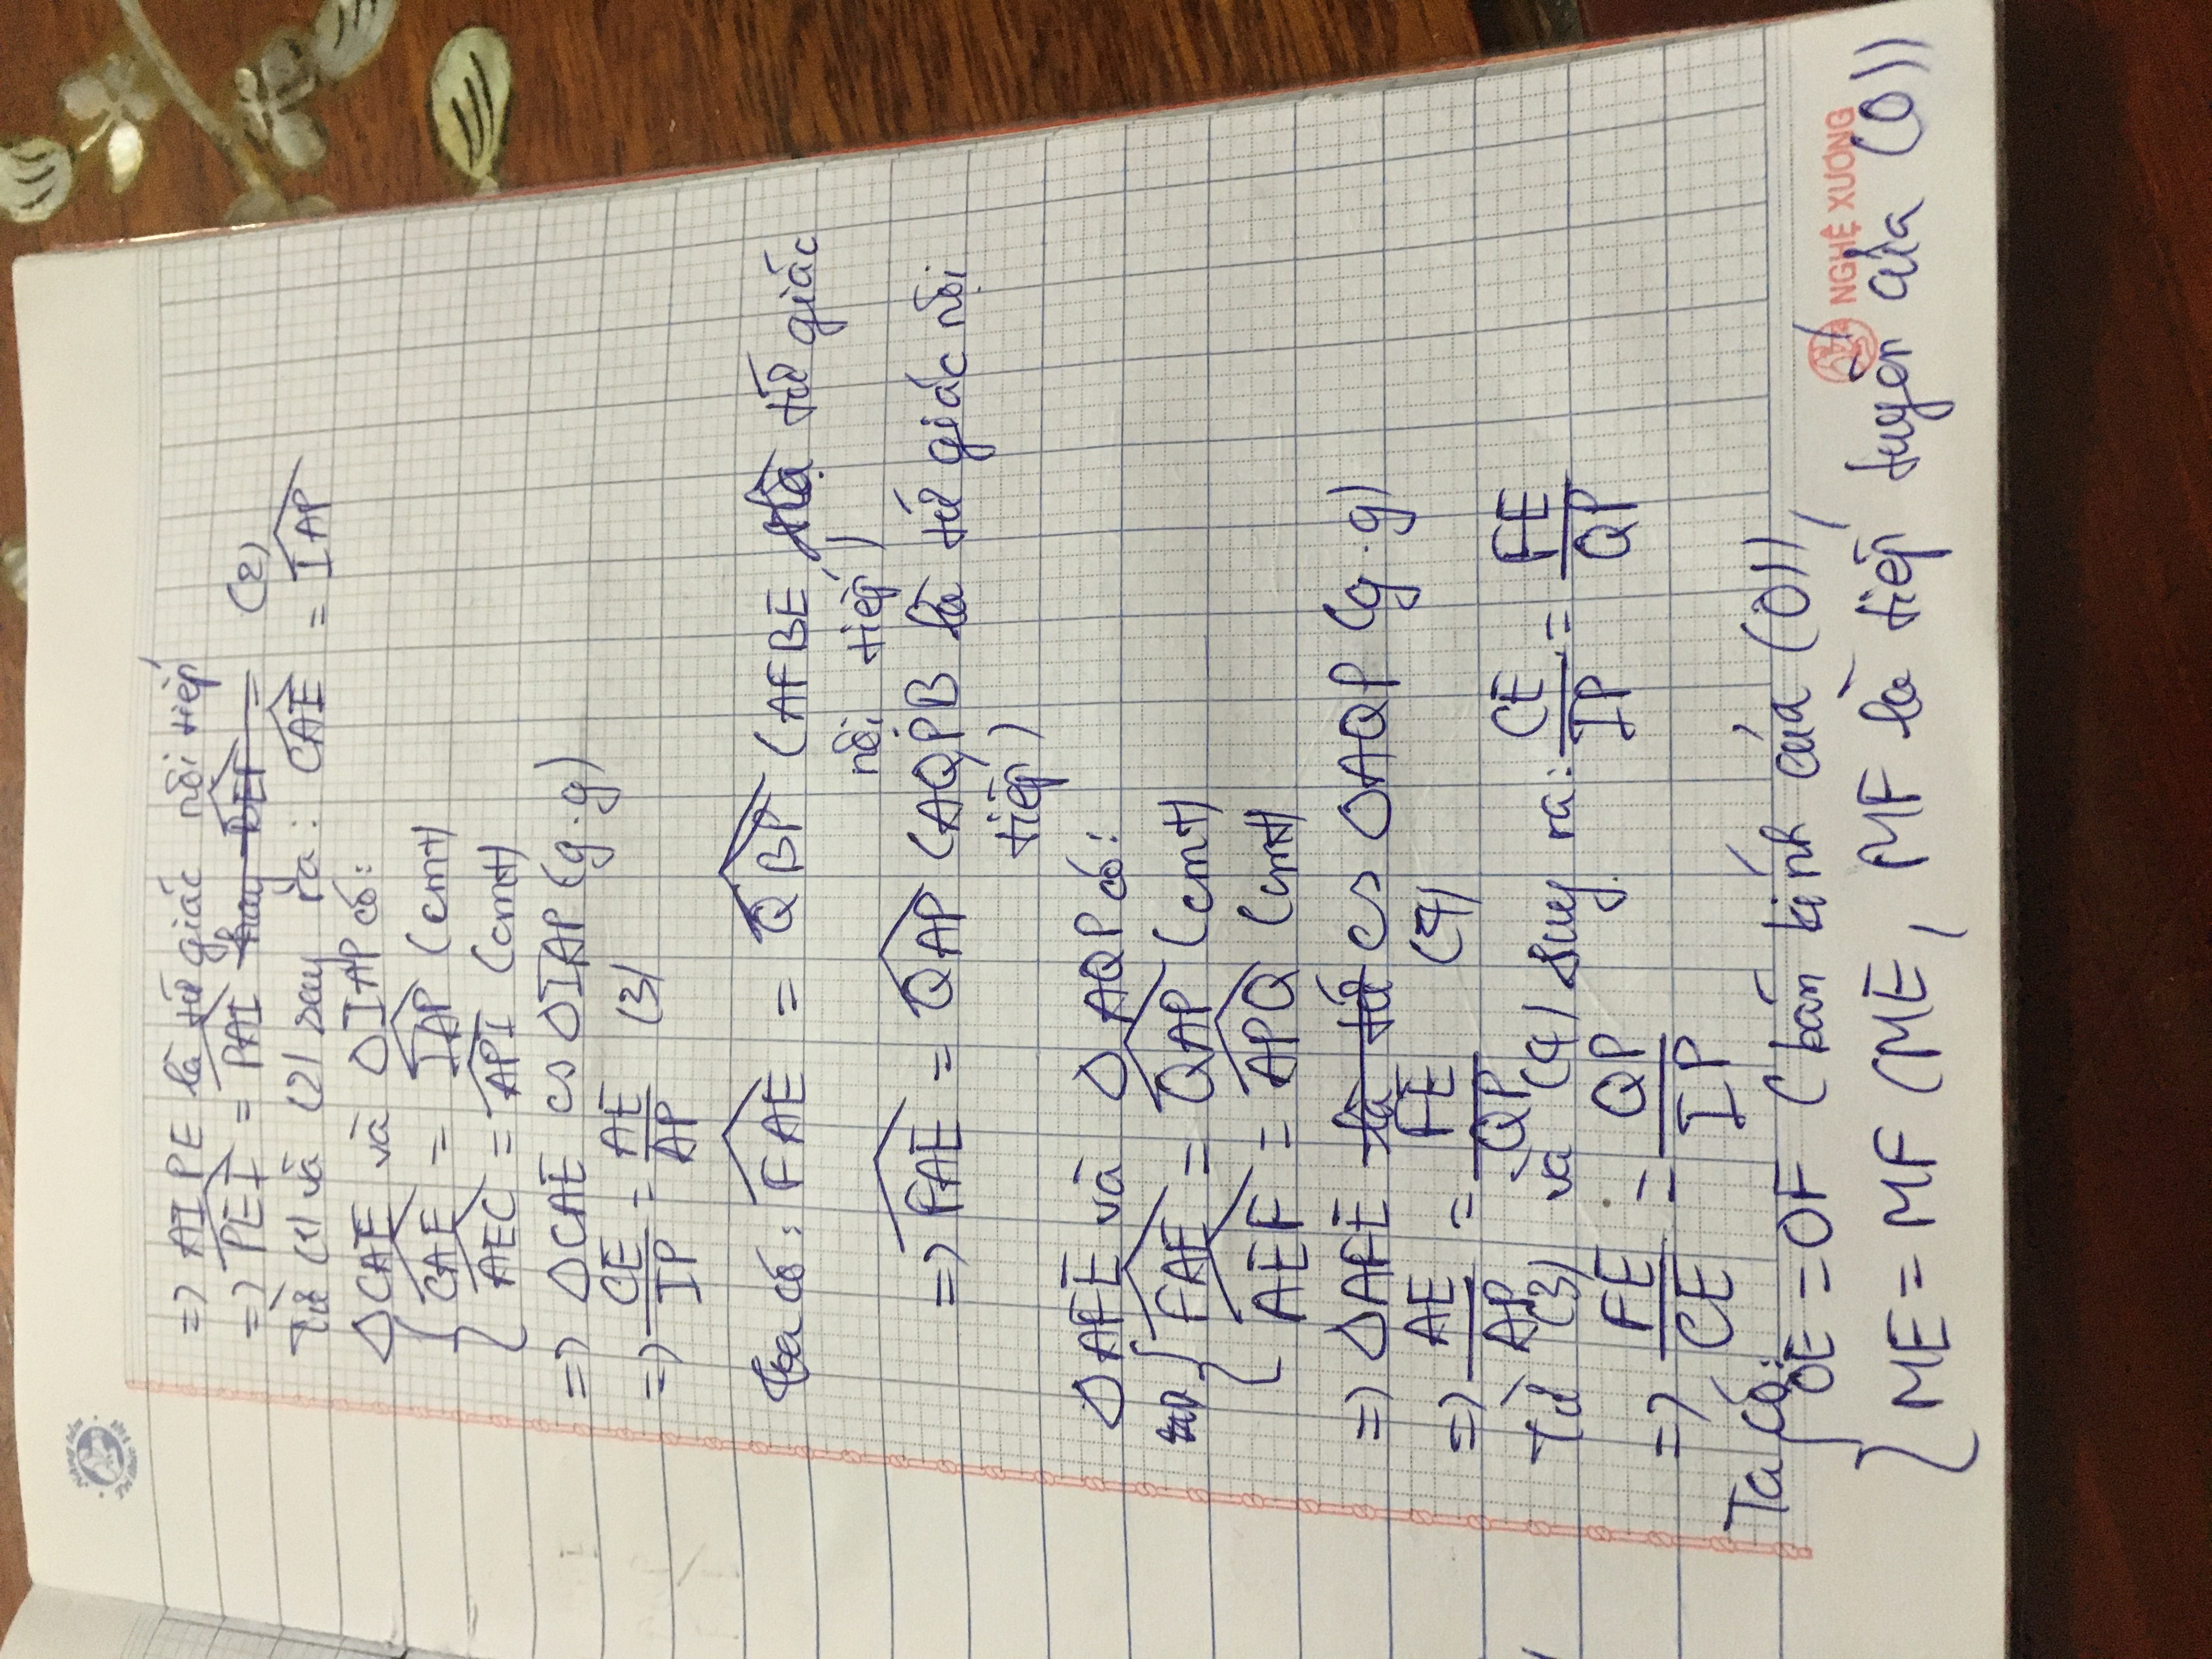 Nâng tầm
Tri thức Việt
=> AIPE là tứ giác nội tiếp
=> PEI = PAI hay BEF = (2)
Từ (1) và (2) suy ra: CAE = IAP
△CAE và △IAP có:
{ CAE = IAP (cmt)
{ AEC = API (cmt)
=> △CAE ∽ △IAP (g.g)
=> CE/IP = AE/AP (3)
Ta có: FAE = QBP (AFBE là tứ giác
nội tiếp)
=> FAE = QAP (AQPB là tứ giác nội
tiếp)
△AFE và △AQP có:
{ FAE = QAP (cmt)
{ AEF = APQ (cmt)
=> △AFE là tứ ∽ △AQP (g.g)
=> AE/AP = FE/QP (4)
Từ (3) và (4) suy ra: CE/IP = FE/QP
=> FE/CE = QP/IP
Ta có:
{ OE = OF (bán kính của (O)),
{ ME = MF (ME, MF là tiếp tuyến của (O))
NGHỆ XƯƠNG